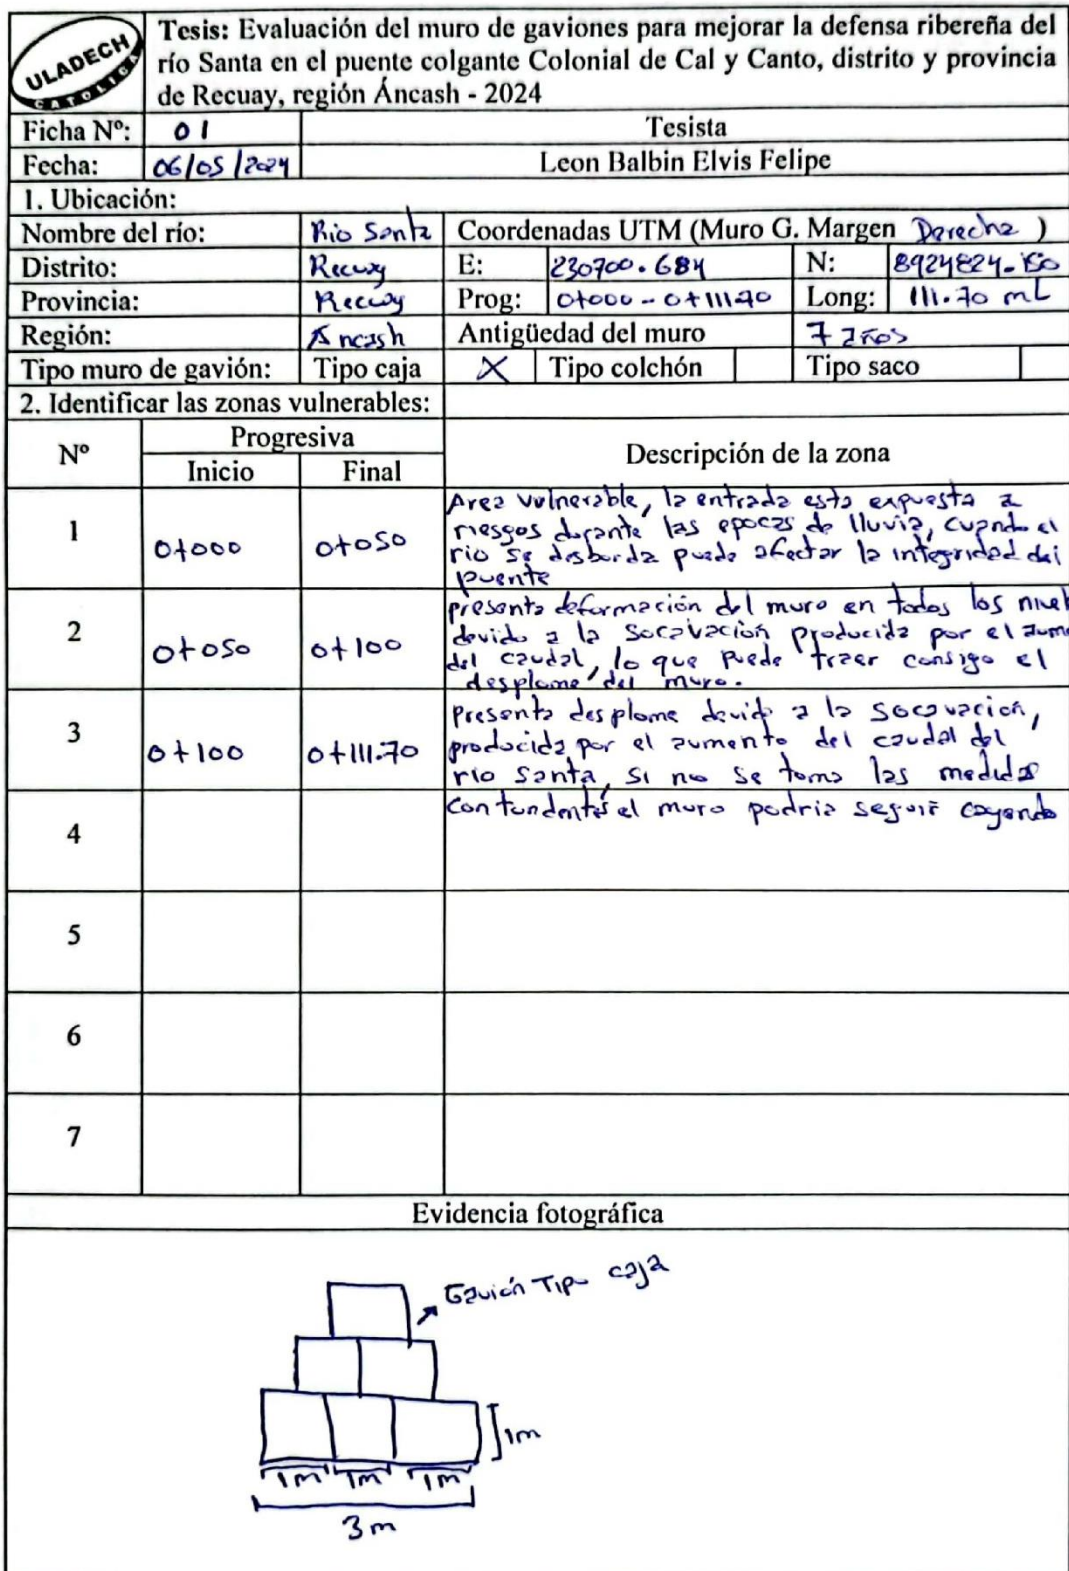 ULADECH
CATOLICA
Tesis: Evaluación del muro de gaviones para mejorar la defensa ribereña del
río Santa en el puente colgante Colonial de Cal y Canto, distrito y provincia
de Recuay, región Áncash - 2024
Ficha Nº: 01 Tesista
Fecha: 06/05/2024 Leon Balbin Elvis Felipe
1. Ubicación:
Nombre del río: Rio Santa Coordenadas UTM (Muro G. Margen Derecha )
Distrito: Recuay E: 230700.684 N: 8924824.150
Provincia: Recuay Prog: 0+000 - 0+111.70 Long: 111.70 mL
Región: Ancash Antigüedad del muro 7 años
Tipo muro de gavión: Tipo caja X Tipo colchón Tipo saco
2. Identificar las zonas vulnerables:
Nº Progresiva Descripción de la zona
Inicio Final
1 0+000 0+050 Area vulnerable, la entrada esta expuesta a
riesgos durante las epocas de lluvia, cuando el
rio se desborda puede afectar la integridad del
puente
2 0+050 0+100 presenta deformación del muro en todos los nivel
devido a la socavación producida por el aume
del caudal, lo que puede traer consigo el
desplome del muro.
3 0+100 0+111.70 presenta desplome devido a la socavación,
producida por el aumento del caudal del
rio santa, si no se toma las medidas
contundentes el muro podria seguir cayendo
4
5
6
7
Evidencia fotográfica
Gavión Tipo caja
1m
1m 1m 1m
3m